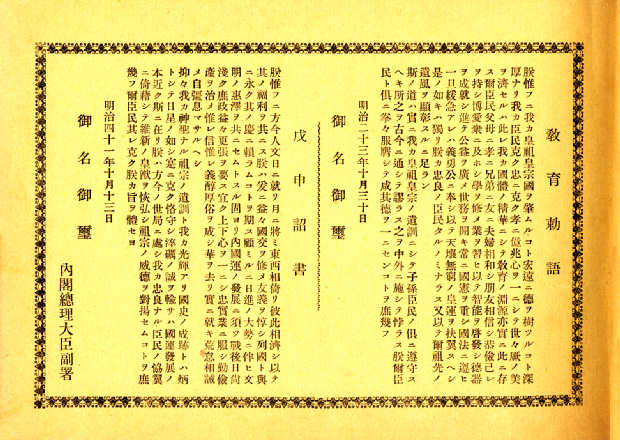 敎育勅語
朕惟フニ我カ皇祖皇宗國ヲ肇ムルコト宏遠ニ德ヲ樹ツルコト深
厚ナリ我カ臣民克ク忠ニ克ク孝ニ億兆心ヲ一ニシテ世々厥ノ美
ヲ濟セルハ此レ我カ國體ノ精華ニシテ敎育ノ淵源亦實ニ此ニ存
ス爾臣民父母ニ孝ニ兄弟ニ友ニ夫婦相和シ朋友相信シ恭儉己レ
ヲ持シ博愛衆ニ及ホシ學ヲ修メ業ヲ習ヒ以テ智能ヲ啓發シ德器
ヲ成就シ進テ公益ヲ廣メ世務ヲ開キ常ニ國憲ヲ重シ國法ニ遵ヒ
一旦緩急アレハ義勇公ニ奉シ以テ天壤無窮ノ皇運ヲ扶翼スヘシ
是ノ如キハ獨リ朕カ忠良ノ臣民タルノミナラス又以テ爾祖先ノ
遺風ヲ顯彰スルニ足ラン
斯ノ道ハ實ニ我カ皇祖皇宗ノ遺訓ニシテ子孫臣民ノ俱ニ遵守ス
ヘキ所之ヲ古今ニ通シテ謬ラス之ヲ中外ニ施シテ悖ラス朕爾臣
民ト俱ニ拳々服膺シテ咸其德ヲ一ニセンコトヲ庶幾フ
明治二十三年十月三十日
御名御璽
戊申詔書
朕惟フニ方今人文日ニ就リ月ニ將ミ東西相倚リ彼此相濟シ以テ
其ノ福利ヲ共ニス朕ハ爰ニ益々國交ヲ修メ友義ヲ惇シ列國ト與
ニ永ク其ノ慶ニ賴ラムコトヲ期ス顧ミルニ日進ノ大勢ニ伴ヒ文
明ノ惠澤ヲ共ニセムトスル固ヨリ內國運ノ發展ニ須ツ戰後日尙
淺ク庶政益々更張ヲ要ス宜ク上下心ヲ一ニシ忠實業ニ服シ勤儉
產ヲ治メ惟レ信惟レ義醇厚俗ヲ成シ華ヲ去リ實ニ就キ荒怠相誡
メ自彊息マサルヘシ
抑々我カ神聖ナル祖宗ノ遺訓ト我カ光輝アル國史ノ成跡トハ炳
トシテ日星ノ如シ寔ニ克ク恪守シ淬礪ノ誠ヲ輸サハ國運發展ノ
本近ク斯ニ在リ朕ハ方今ノ世局ニ處シ我カ忠良ナル臣民ノ協翼
ニ倚藉シテ維新ノ皇猷ヲ恢弘シ祖宗ノ威德ヲ對揚セムコトヲ庶
幾フ爾臣民其レ克ク朕カ旨ヲ體セヨ
明治四十一年十月十三日
御名御璽
內閣總理大臣副署